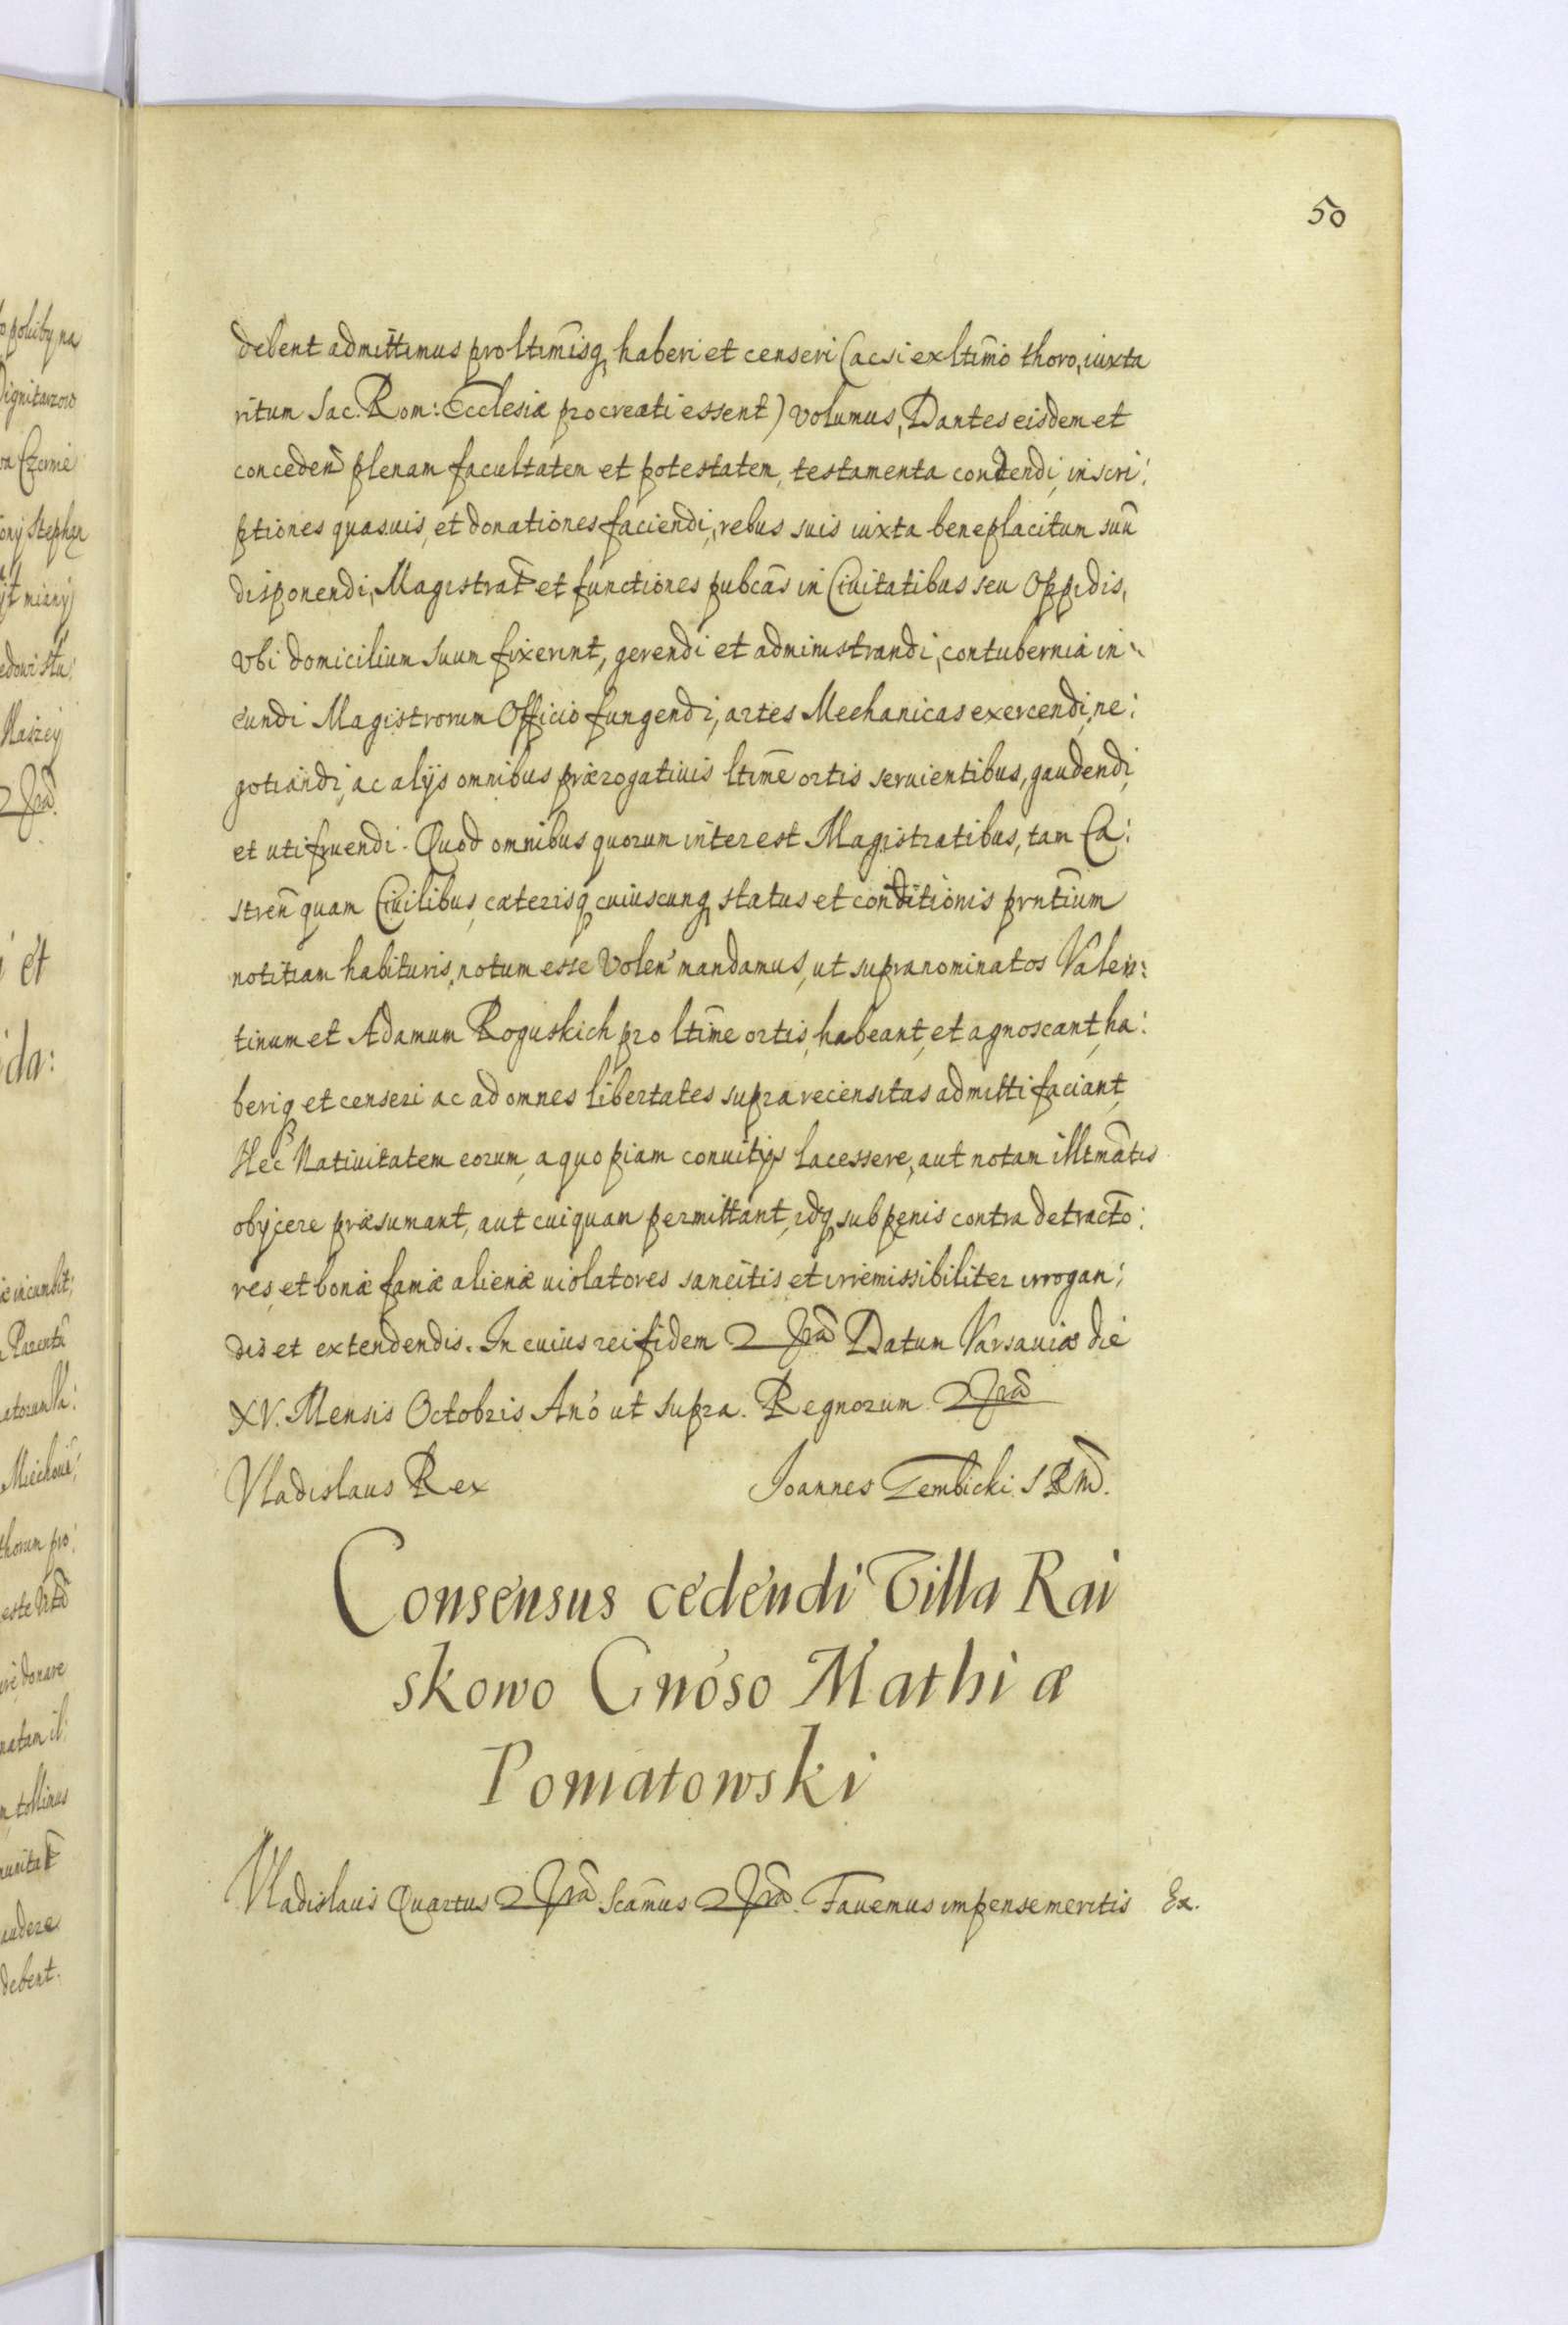 50
debent admittimus pro ltimisq haberi et censeri (ac si ex ltimo thoro, iuxta
ritum Sac. Rom: Ecclesiæ procreati essent) volumus, Dantes eisdem et
conceden plenam facultatem et potestatem, testamenta condendi, inscri:
ptiones quasuis, et donationes faciendi, rebus suis iuxta beneplacitum suũ
disponendi, Magistrat et functiones pubcas in Ciuitatibus seu Oppidis,
Vbi domicilium suum fixerint, gerendi et administrandi, contubernia in
eundi Magistrorum Officio fungendi, artes Mechanicas exercendi, ne:
gotiandi, ac alijs omnibus prærogatiuis ltime ortis seruientibus, gaudendi,
et utifruendi. Quod omnibus quorum interest Magistratibus, tam Ca:
stren quam Ciuilibus, cæterisq cuiuscunq status et conditionis prntium
notitiam habituris, notum esse Volen mandamus, ut supranominatos Valen:
tinum et Adamum Roguskich pro ltime ortis, habeant, et agnoscant, ha:
beriq et censeri ac ad omnes libertates supra recensitas admitti faciant,
Nec Natiuitatem eorum, a quopiam conuitijs lacessere, aut notam illtmatis
obijcere præsumant, aut cuiquam permittant, idq sub penis contra detracto:
res, et bonæ famæ alienæ uiolatores sancitis et irremissibiliter irrogan:
dis et extendendis. In cuius rei fidem Datum Varsauiæ die
XV. Mensis Octobris Ano ut supra. Regnorum
Vladislaus Rex Joannes Zembicki S R M.
Consensus cedendi Villa Rai
skowo Gnoso Mathiæ
Poniatowski
Vladislaus Quartus Scamus Fauemus impense meritis Ex.